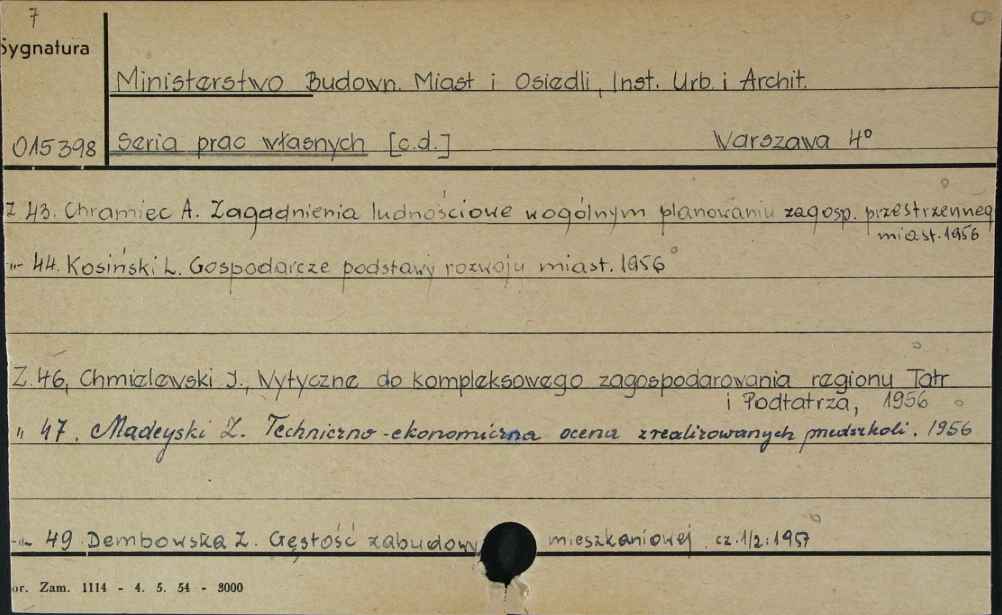 7
Sygnatura
Ministerstwo Budown. Miast i Osiedli, Inst. Urb. i Archit.
015398 Seria prac własnych [c.d.] Warszawa 4°
Z 43. Chramiec A. Zagadnienia ludnościowe w ogólnym planowaniu zagosp. przestrzenneg
miast. 1956
-"- 44. Kosiński L. Gospodarcze podstawy rozwoju miast. 1956
Z. 46, Chmielewski J., Wytyczne do kompleksowego zagospodarowania regionu Tatr
i Podtatrza, 1956
" 47. Madeyski Z. Techniczno-ekonomiczna ocena zrealizowanych przedszkoli. 1956
-"- 49 Dembowska Z. Gęstość zabudowy mieszkaniowej. cz. 1/2: 1957
or. Zam. 1114 - 4. 5. 54 - 3000